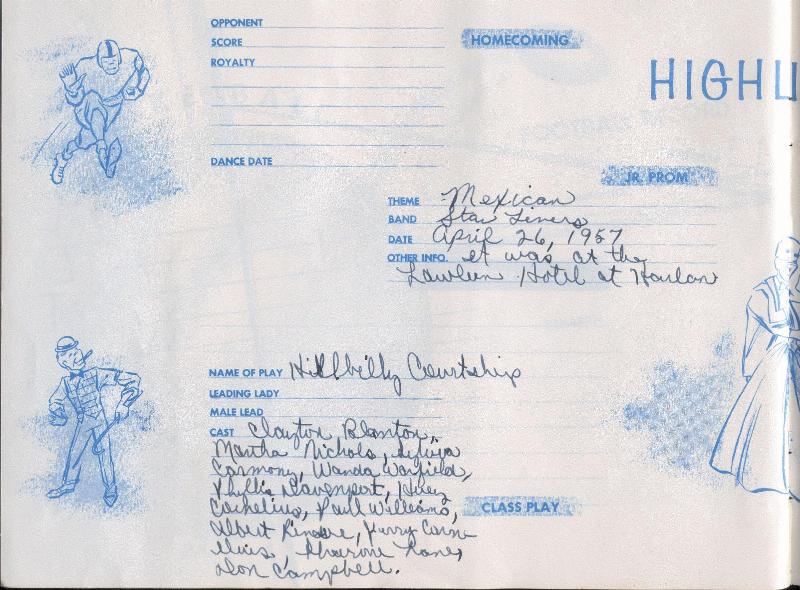 OPPONENT
SCORE
HOMECOMING
ROYALTY
HIGHL
DANCE DATE
JR. PROM
THEME Mexican
BAND Star Liners
DATE April 26, 1957
OTHER INFO. it was at the
Hotel at Harlan
NAME OF PLAY Hillbilly Courtship
LEADING LADY
MALE LEAD
CAST Clayton Blanton,
Martha Nichols, Sylvia
Carmony, Wanda Warfield,
Phyllis Davenport,
Cornelius, Paul Williams,
CLASS PLAY
Albert
Sharon
Don Campbell.